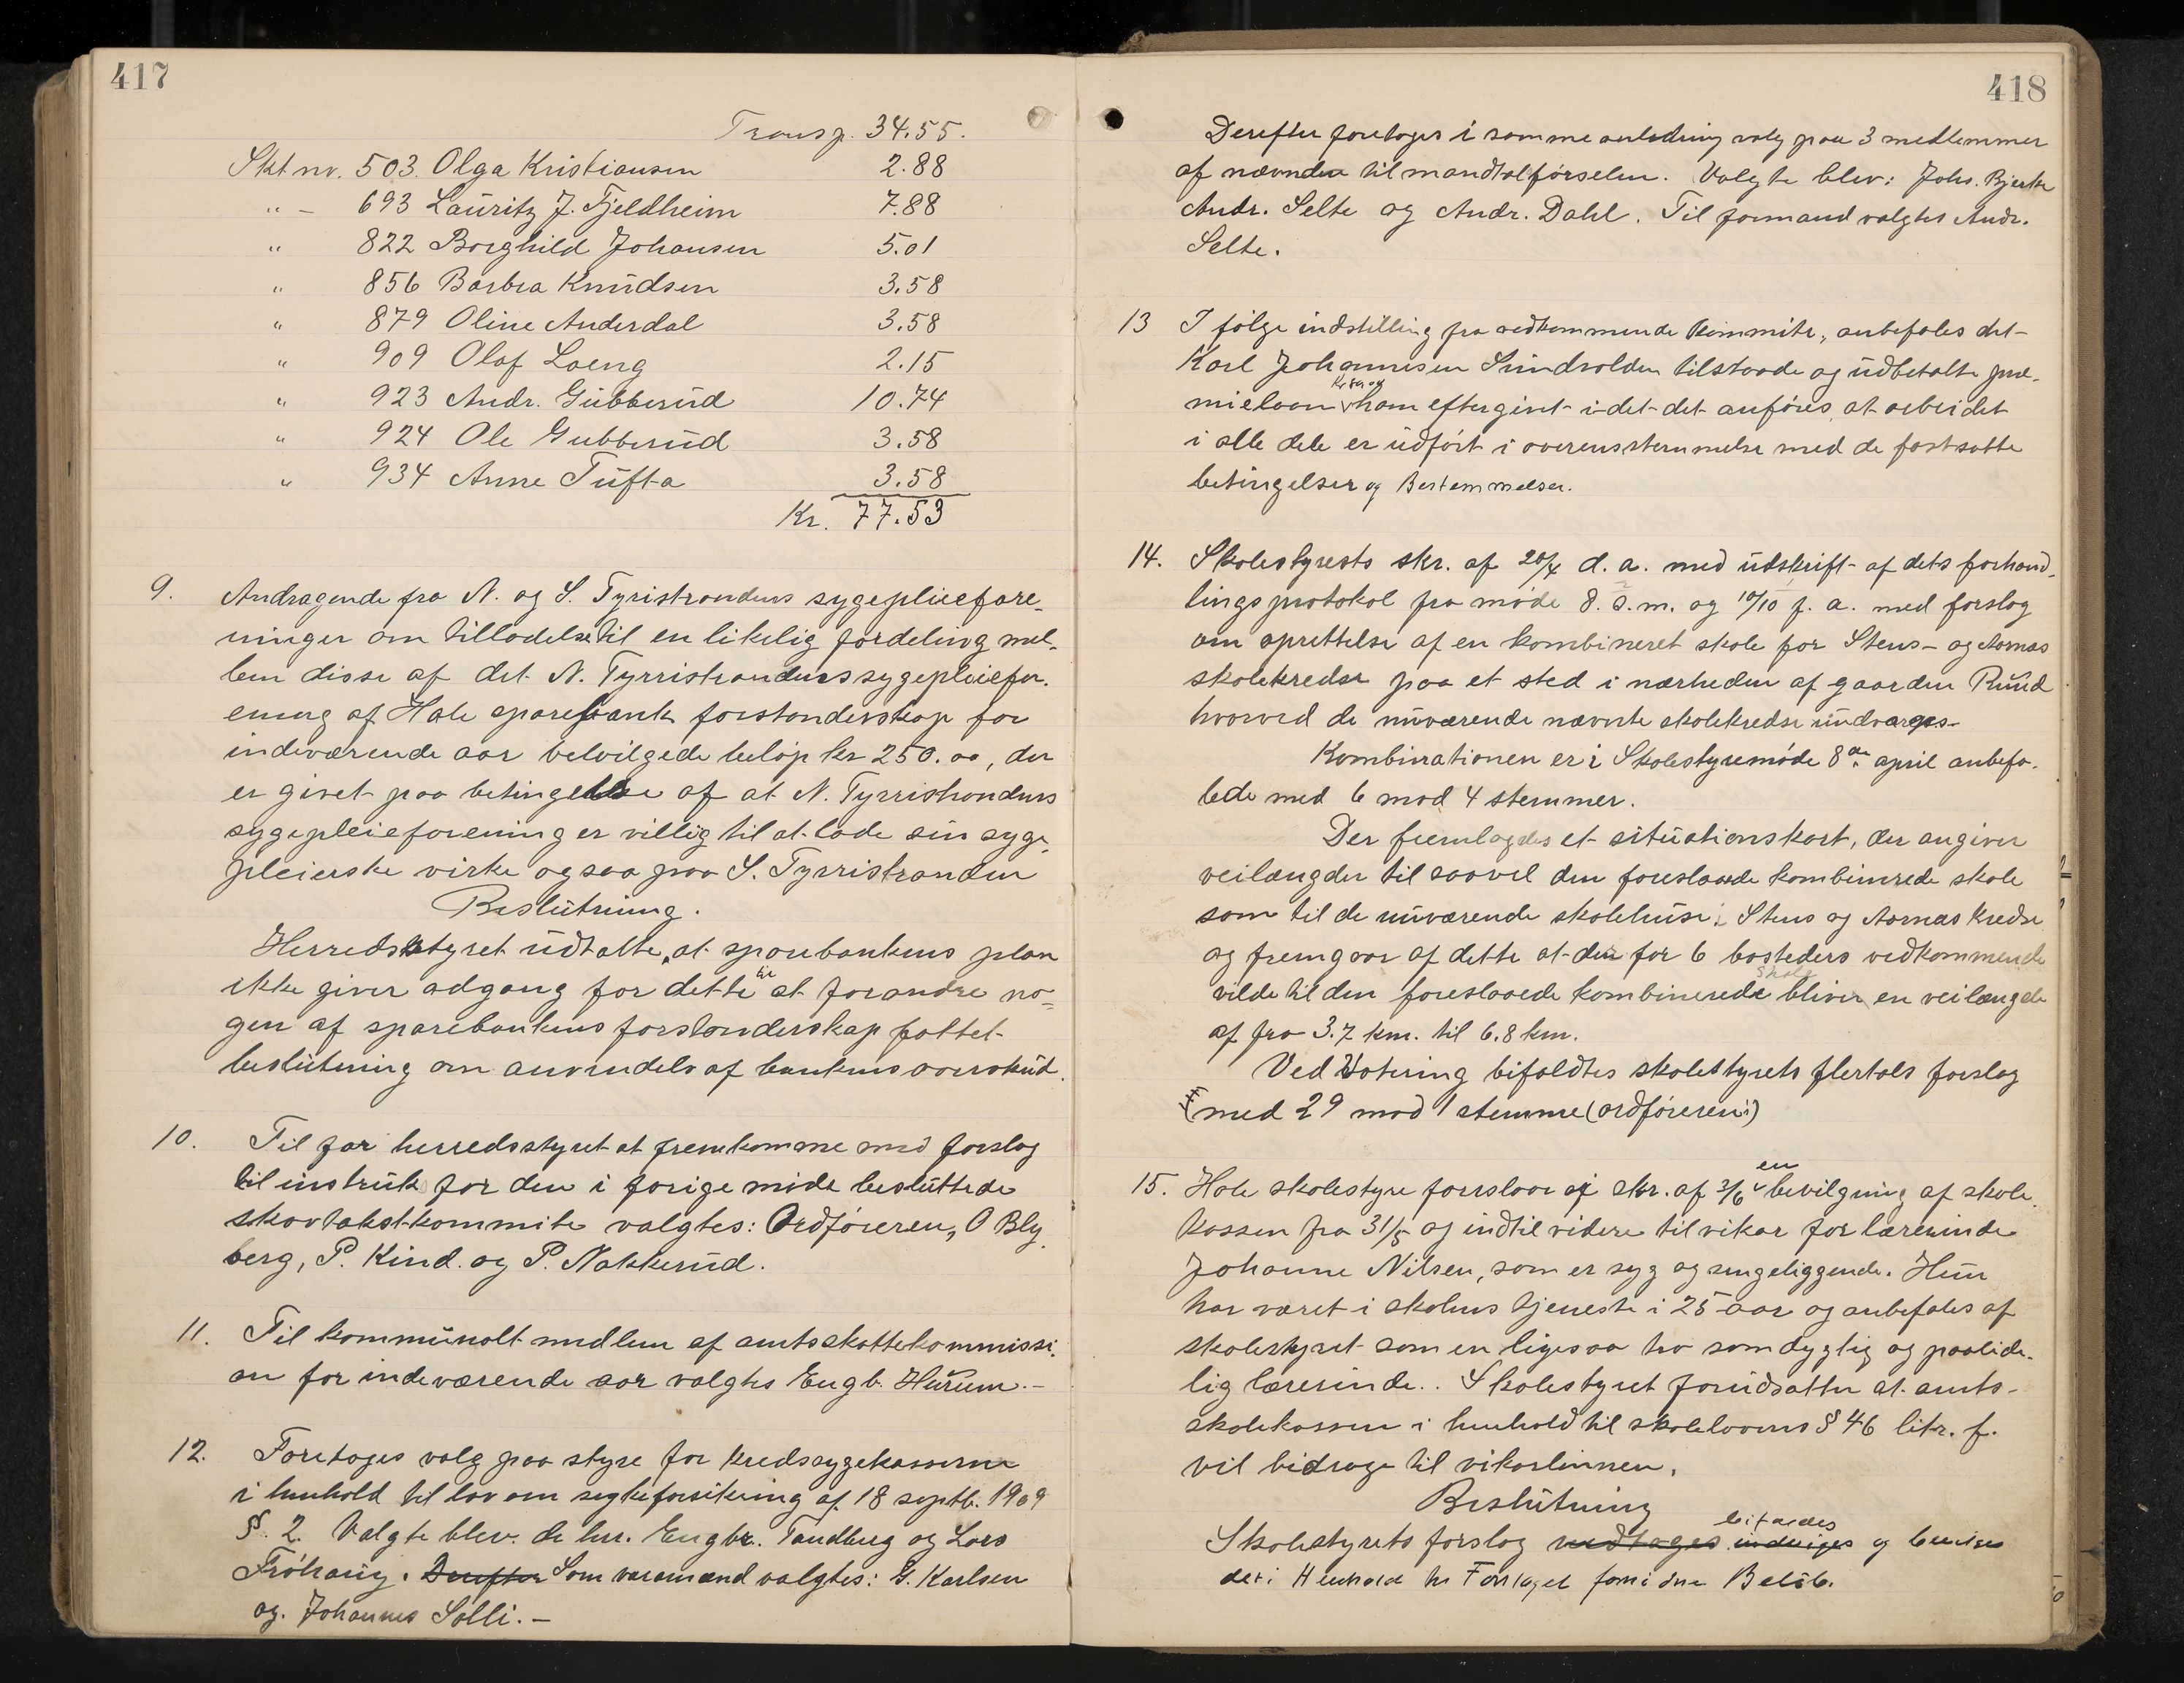 417
Transp. 34.55.
Skt nr. 503. Olga Kristiansen 2.88
" – 693 Lauritz J. Fjeldheim 7.88
" 822 Borghild Johansen 5.01
" 856 Barbra Knudsen 3.58
" 879 Oline Anderdal 3.58
" 909 Olaf Loeng 2.15
" 923 Andr. Gubberud 10.74
" 924 Ole Gubberud 3.58
" 934 Anne Tufta 3.58
Kr. 77.53
9. Andragende fra N. og S. Tyristrandens sygepleiefore-
ninger om tilladelse til en likelig fordeling mel-
lem disse af det N. Tyrristrandens sygepleiefor-
ening af Hole sparebank forstanderskap for
indeværende aar bevilgede beløp kr 250.00, der
er givet paa betingelse af at N. Tyrristrandens
sygepleieforening er villig til at lade sin syge-
pleierske virke ogsaa paa S. Tyrristranden
Beslutning.
Herredsstyret udtalte, at sparebankens plan
ikke giver adgang for dette til at forandre no-
gen af sparebankens forstanderskap fattet
beslutning om anvendelse af bankens overskud.
10. Til for herredsstyret at fremkomme med forslag
til instruk for den i forige møde besluttede
skovtakstkommite valgtes: Ordføreren, O Bly-
berg, P. Kind. og P. Nakkerud.
11. Til kommunalt medlem af amtsskattekommissi-
on for indeværende aar valgtes Engb. Hurum.–
12. Foretoges valg paa styre for kredssygekasserne
i henhold til lov om sygeforsikring af 18 septb. 1909
§. 2. Valgte blev. de hrr. Engbr. Tandberg og Lars
Frøhaug. Derefter Som varamænd valgtes: G. Karlsen
og. Johannes Solli.–
418
Derefter foretoges i samme anledning valg paa 3 medlemmer
af nævnden til mandtalførselen. Valgte blev: Johs. Bjerke
Andr. Selte og Andr. Dahl. Til formand valgtes Andr.
Selte.
13 I følge indstilling fra vedkommende kommite, anbefales det
Karl Johannesen Sundvolden tilstaade og udbetalte præ-
mielaan ham eftergivet i det det anføres, at arbeidet
i alle dele er udført i overensstemmelse med de fastsatte
betingelser og Bestemmelser.
14. Skolestyrets skr. af 20/4 d. a. med udskrift af dets forhand-
lings protokol fra møde 8. s. m. og 10/10 f. a. med forslag
om oprettelse af en kombineret skole for Stens- og Aarnas
skolekredse paa et sted i nærheden af gaarden Ruud
hvorved de nuværende nævnte skolekredse
Kombinationen er i Skolestyremøde 8de april anbefa-
lede med 6 mod 4 stemmer.
Der fremlagdes et situationskart, der angiver
veilængder til saavel den foreslaaede kombinerede skole
som til de nuværende skolehuse i Stens og Aarnas kredse
og fremgaar af dette at der for 6 bosteders vedkommende
vilde til den foreslaaede kombinerede skole bliver en veilængde
af fra 3.7 km. til 6.8 km.
Ved Votering bifaldtes skolestyrets flertals forslag
med 29 mod 1 stemme (ordførerens)
15. Hole skolestyre foreslaar af skr. af 3/6 en bevilgning af skole-
kassen fra 31/5 og indtil videre til vikar for lærerinde
Johanne Nilsen, som er syg og sengeliggende. Hun
har været i skolens tjeneste i 25 aar og anbefales af
skolestyret som en ligesaa tro som dygtig og paalide-
lig lærerinde. Skolestyret forudsætter at amts-
skolekassen i henhold til skolelovens § 46 litr. f.
vil bidrage til vikarlønnen.
Beslutning
Skolestyrets forslag vedtages bifaldes og
der i Henhold til Forslaget Beløb.